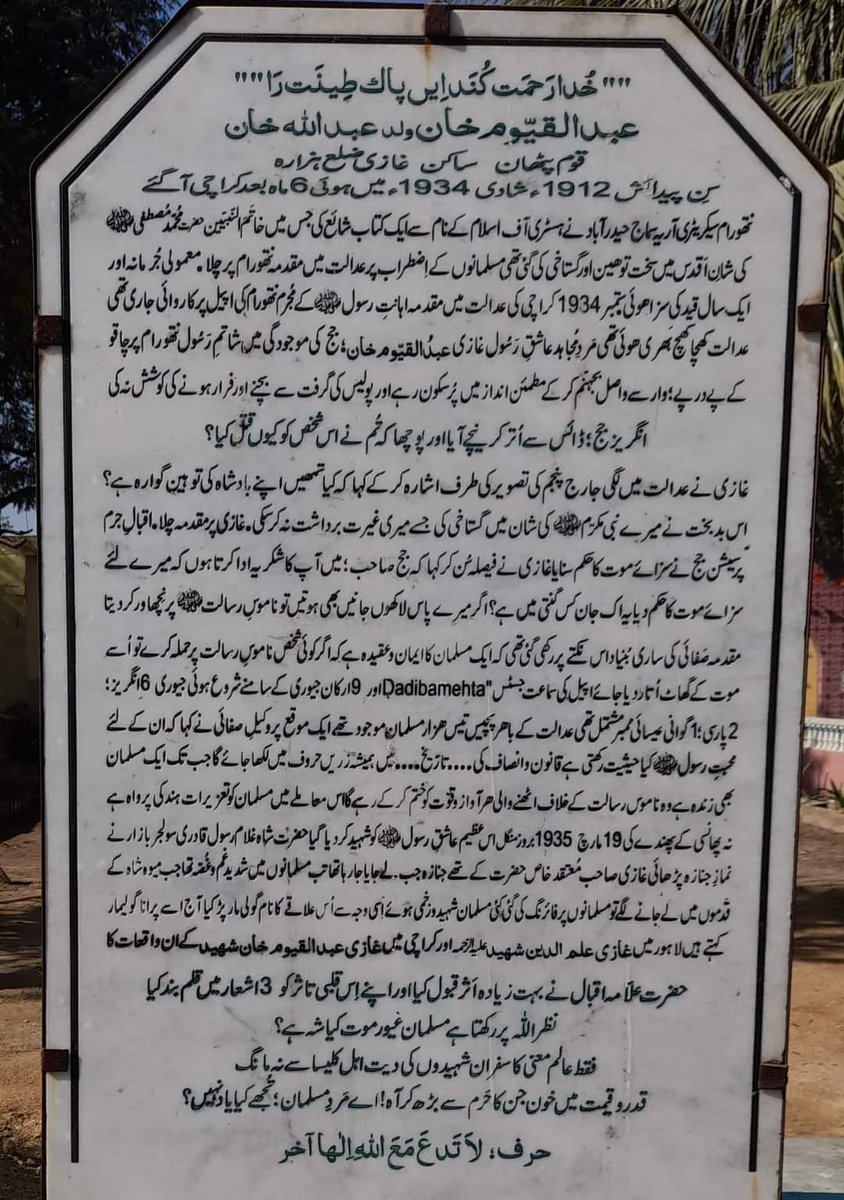 ""خُدا رَحمَت کُنَد اِیں پاك طِینَت رَا""
عبد القیّوم خان ولد عبد اللہ خان
قوم پٹھان ساکن غازی ضلع ہزارہ
سِن پیدائش 1912ء شادی 1934ء میں ہوئی 6 ماہ بعد کراچی آگئے
نتھورام سیکریٹری آریہ سماج حیدرآباد نے ہسٹری آف اسلام کے نام سے ایک کتاب شائع کی جس میں خاتم النّبیین حضرت مُحَمَّد مُصطفٰی ﷺ
کی شانِ اَقدس میں سخت توھین اور گستاخی کی گئی تھی مسلمانوں کے اِضطراب پر عدالت میں مقدمہ نتھورام پر چلا، معمولی جُرمانہ اور
ایک سال قید کی سزا ھوئی ستمبر 1934 کراچی کی عدالت میں مقدمہ اہانتِ رسول ﷺ کے مُجرم نتھورام کی اپیل پر کاروائی جاری تھی
عدالت کھچا کھچ بھری ھوئی تھی مَردِ مُجاہد عاشقِ رَسُول غازی عبدُ القیّوم خان؛ جج کی موجودگی میں شاتمِ رَسُول نتھورام پر چاقو
کے پے درپے؛ وار سے واصل بجہنم کرکے مطمئن انداز میں پُرسکون رہے اور پولیس کی گرفت سے بچنے اور فرار ہونے کی کوشش نہ کی
انگریز جج؛ ڈائس سے اُتر کر نیچے آیا اور پوچھا کہ تُم نے اس شخص کو کیوں قتل کیا؟
غازی نے عدالت میں لگی جارج پنجم کی تصویر کی طرف اشارہ کرکے کہا کہ کیا تمھیں اپنے بادشاہ کی توہین گوارہ ہے؟
اس بدبخت نے میرے نبی مکرّم ﷺ کی شان میں گستاخی کی جسے میری غیرت برداشت نہ کرسکی، غازی پر مقدمہ چلا، اقبالِ جرم
پر سیشن جج نے سزائے موت کا حکم سنایا غازی نے فیصلہ سُن کر کہا کہ جج صاحب؛ میں آپ کا شکریہ ادا کرتا ہوں کہ میرے لئے
سزائے موت کا حکم دیا یہ اک جان کس گنتی میں ہے؟ اگر میرے پاس لاکھوں جانیں بھی ہوتیں تو ناموسِ رسالت ﷺ پر نچھاور کردیتا
مقدمہ صَفائی کی ساری بُنیاد اس نکتے پر رکھی گئی تھی کہ ایک مسلمان کا ایمان و عقیدہ ہے کہ اگر کوئی شخص ناموسِ رسالت پر حملہ کرے تو اُسے
موت کے گھاٹ اُتار دیا جائے اپیل کی سماعت جسٹس "Dadibamehta اور 9 ارکان جیوری کے سامنے شروع ہوئی جیوری 6 انگریز؛
2 پارسی؛ 1 گوانی عیسائی ممبر مشتمل تھی عدالت کے باھر پچیس تیس ھزار مسلمان موجود تھے ایک موقع پر وکیلِ صفائی نے کہا کہ ان کے لئے
محبتِ رسول ﷺ کیا حیثیت رکھتی ہے قانون وانصاف کی.... تاریخ.... میں ہمیشہ زَریں حروف میں لکھا جائے گا جب تک ایک مسلمان
بھی زندہ ہے وہ ناموسِ رسالت کے خلاف اٹھنے والی ھر آواز و قوّت کو ختم کرکے رہے گا اس معاملے میں مسلمان کو تعزیراتِ ہند کی پرواہ ہے
نہ پھانسی کے پھندے کی 19 مارچ 1935 بروز منگل اس عظیم عاشقِ رسول ﷺ کو شہید کردیا گیا حضرت شاہ غلام رسول قادری سولجر بازار نے
نمازِ جنازہ پڑھائی غازی صاحب مُعتقدِ خاص حضرت کے تھے جنازہ جب لے جایا جارہا تھا تب مسلمانوں میں شدید غم و غُصّہ تھا جب میوہ شاہ کے
قدموں میں لے جانے لگے تو مسلمانوں پر فائرنگ کی گئی کئی مسلمان شہید و زخمی ہوئے اِسی وجہ سے اُس علاقے کا نام گولی مار پڑ گیا آج اسے پرانا گولیمار
کہتے ہیں لاہور میں غازی علم الدین شھید علیہ الرحمہ اور کراچی میں غازی عبد القیوم خان شھید کے ان واقعات کا
حضرت علّامہ اقبال نے بہت زیادہ اَثر قبول کیا اور اپنے اِس قلبی تاثر کو 3 اشعار میں قلم بند کیا
نظر اللہ پر رکھتا ہے مسلمان غیور موت کیا شہ ہے؟
فقط عالمِ معنی کا سفر ان شہیدوں کی دیت اہلِ کلیسا سے نہ مانگ
قدر و قیمت میں خون جن کا حَرم سے بڑھ کر آہ! اے مَردِ مسلمان؛ تُجھے کیا یاد نہیں؟
حرف؛ لَا تَدعُ مَعَ اللہِ اِلٰھًا آخر